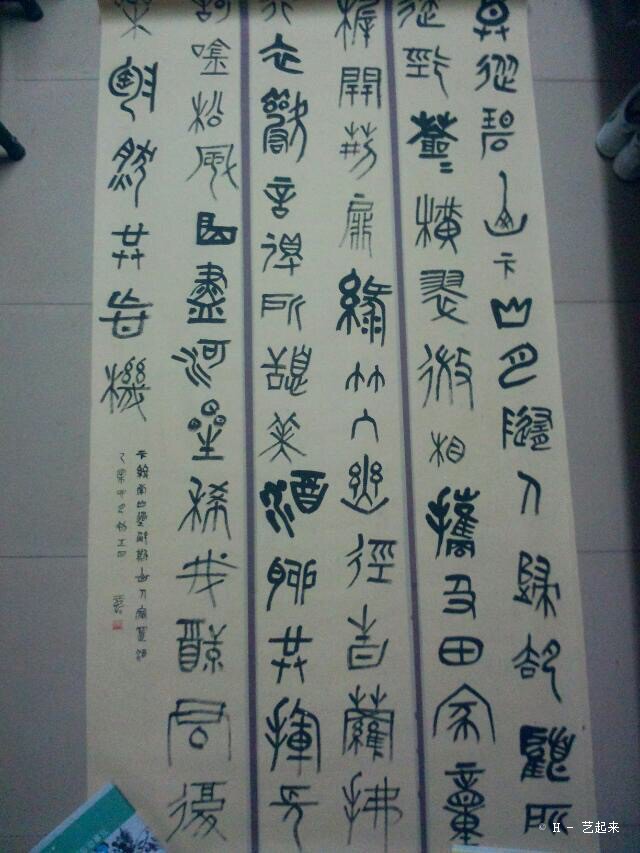 莫從碧山下山月隨人歸卻顧所
來徑蒼〻橫翠微相攜及田家童
稚開荊扉綠竹入幽徑青蘿拂
行衣歡言得所憩美酒聊共揮長
歌唫松風曲盡河星稀我醉君復
樂陶然共忘機
下終南山過斛斯山人宿置酒
© H - 艺起来